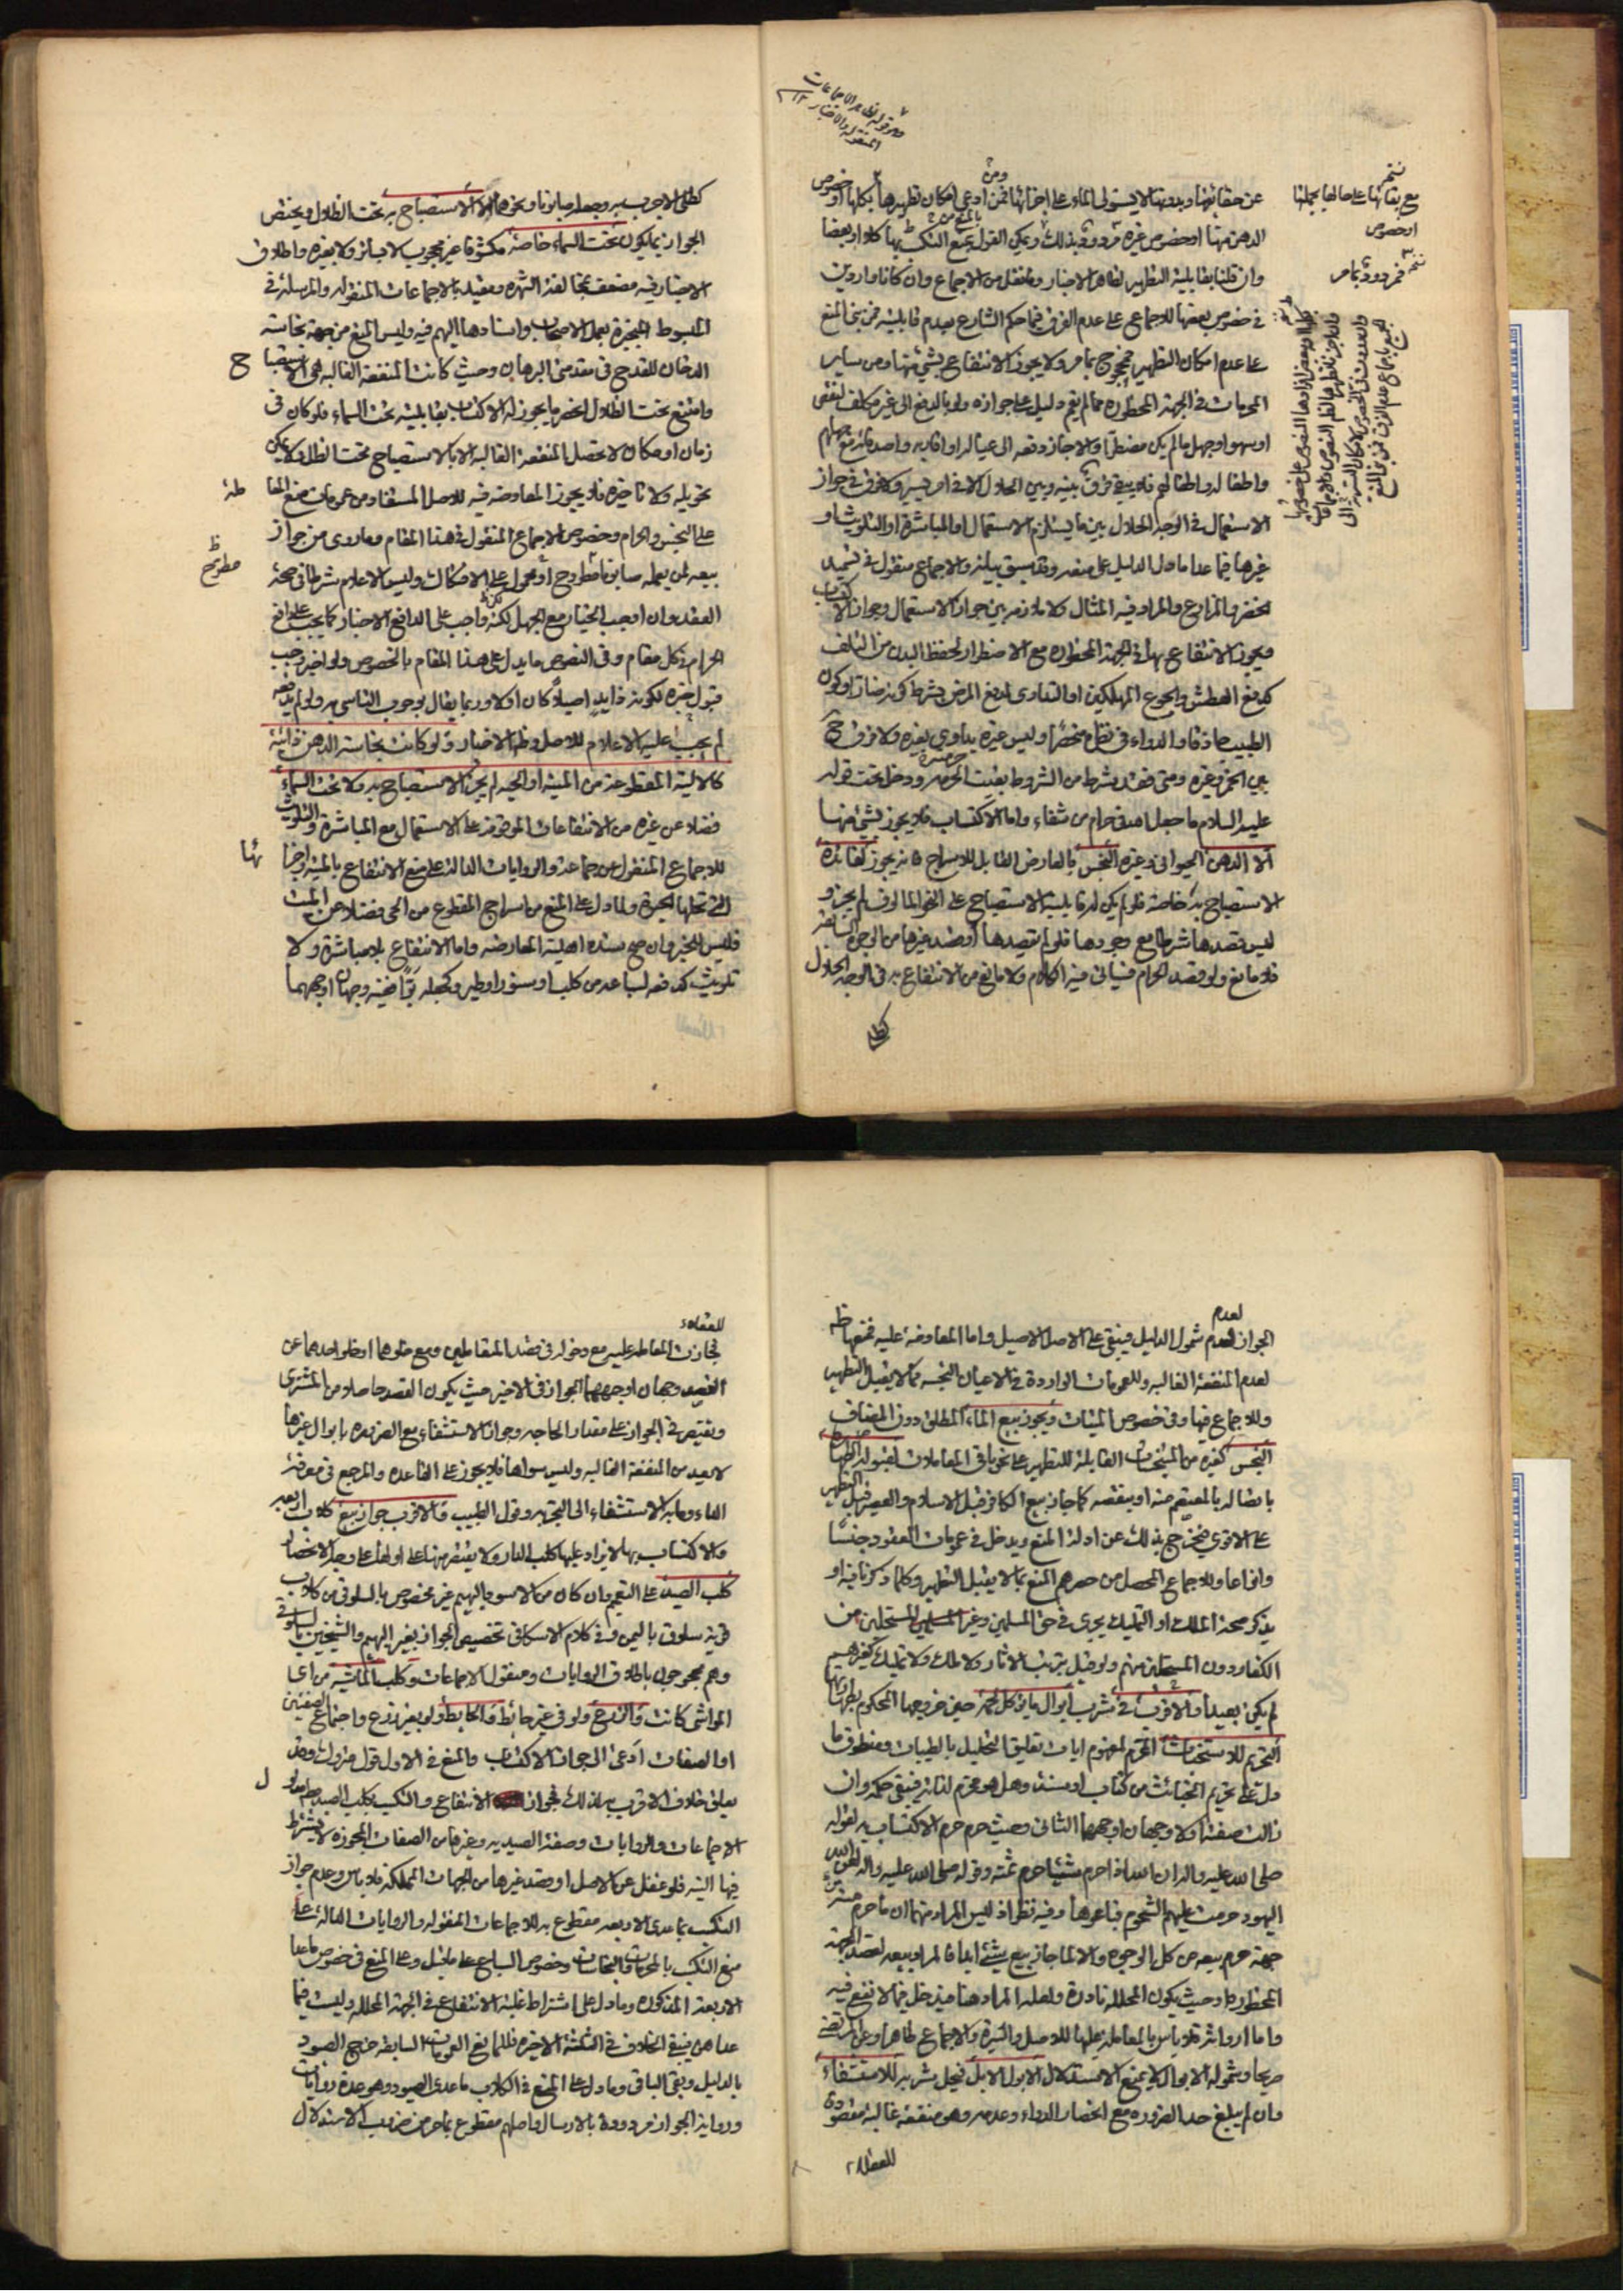 عن حقائقها وبدونها لا يستولي الماء على اجزائها فمن ادعى امكان تطهيرها بكلها او خصوص
الدهن منها او خصوص غيره مردود بذلك ويمكن القول بمنع التكسب بها كلا او بعضا
وان قلنا بقابلية التطهير لظاهر الاخبار وما نقل من الاجماع وان كانا واردين
في خصوص بعضها للاجماع على عدم الفرق فيما حكم الشارع بعدم قابليته فمن بنى المنع
على عدم امكان التطهير فمحجوج بما مر ولا يجوز الانتفاع بشيء منها ومن ساير
المحرمات في الجهة المحظورة مما لم يقم دليل على جوازه ولو بالدفع الى غير مكلف لنقص
او سهو او جهل ما لم يكن مضطرا والا جاز دفعه الى عياله او اقاربه واصدقائه مع جهلهم
واطفاله واطفالهم فلا يبقى فرق بينه وبين الحلال الا في امر يسير ولا فرق في جواز
الاستعمال في الوجه الحلال بين ما يستلزم الاستعمال او المباشرة او التلويث او
غيرها فيما عدا ما دل الدليل على منعه وقد سبق بيانه والاجماع منقول في تسميد
الخضر والمزارع والمراد فيه المثال ولا ملازمة بين جواز الاستعمال وجواز الاكتساب
ويجوز الانتفاع بها في الجهة المحظورة مع الاضطرار لحفظ البدن من التلف
كدفع العطش والجوع المهلكين او التداوي لدفع المرض بشرط كونه ضارا وكون
الطبيب حاذقا والدواء في نظره منحصرا وليس غيره يداوي بغيره ولا فرق ح
بين الخمر وغيره ومتى فقد شرط من الشروط بقيت الحرمة ودخل تحت قوله
عليه السلام ما جعل الله في حرام من شفاء واما الاكتساب فلا يجوز بشيء منها
الا الدهن الحيواني وغيره النجس بالعارض القابل للاسراج فانه يجوز لفائدة
الاستصباح به خاصة فلو لم يكن له قابلية الاستصباح على النحو المالوف لم يجز و
ليس قصدها شرطا مع وجودها فلو لم يقصدها او قصد غيرها من الوجوه السائغة
فلا مانع ولو قصد الحرام فسياتي فيه الكلام ولا مانع من الانتفاع به في الوجه الحلال
كطلي الاجرب به وجعله صابونا ونحوهما الا الاستصباح به تحت الظلال ويختص
الجواز بما يكون تحت السماء خاصة مكشوفا غير محجوب لا بساتر ولا بغيره واطلاق
الاخبار فيه مضعف بمخالفة الشهرة ومقيد بالاجماعات المنقولة والمرسلة في
المبسوط المجبرة بعمل الاصحاب واسنادها اليهم فيه وليس المنع من جهة نجاسة
الدخان للقدح في مقدمتي البرهان وحيث كانت المنفعة الغالبة هي الاستصباح
وامتنع تحت الظلال انحصر ما يجوز له الاكتساب بقابليته تحت السماء فلو كان في
زمان او مكان لا تحصل المنفعة الغالبة الا بالاستصباح تحت الظل ولا يمكن
تحويله ولا تاخيره فلا يجوز المعاوضة فيه للاصل المستفاد من عمومات منع المعاوضة
على النجس والحرام وخصوص الاجماع المنقول في هذا المقام وما روي من جواز
بيعه لمن يعمله صابونا مطروح او محمول على الامكان وليس الاعلام شرطا في صحة
العقد وان اوجب الخيار مع الجهل لكنه واجب على الدافع الاخبار كما يجب على دافع
الحرام في كل مقام وفي النصوص ما يدل على هذا المقام بالخصوص ولو اخبر وجب
قبول خبره لكونه ذا يد اصيلا كان او لا وربما يقال بوجوب التاسي به ولو لم يدفعه
لم يجب عليه الاعلام للاصل وظاهر الاخبار ولو كانت نجاسة الدهن ذاتية
كالالية المقطوعة من الميتة او الحية لم يجز الاستصباح به ولا تحت السماء
فضلا عن غيره من الانتفاعات الموقوفة على الاستعمال مع المباشرة والتلويث
للاجماع المنقول من جماعة والروايات الدالة على منع الانتفاع بالميتة واجزائها
التي تحلها الحيوة ولما دل على المنع من اسراج المقطوع من الحي فضلا عن الميت
فليس للخبر وان صح سنده اهلية المعارضة واما الانتفاع بلا مباشرة ولا
تلويث كدفعه لساعد من كلب او سنور او طير وكجعله بوا ففيه وجهان اوجههما
الجواز لعدم شمول الدليل فيبقى على الاصل الاصيل واما المعاوضة عليه فمنعها ظاهر
لعدم المنفعة الغالبة وللعمومات الواردة في الاعيان النجسة مما لا يقبل التطهير
وللاجماع فيها وفي خصوص الميتات ويجوز بيع الماء المطلق دون المضاف
النجس كغيره من المتنجسات القابلة للتطهير على نحو باقي المعاملات لقبوله الطهارة
باتصاله بالمعتصم منه او ببعضه كما جاز بيع الكافر قبل الاسلام والعصير قبل التطهير
على الاقوى فيخرج بذلك عن ادلة المنع ويدخل في عمومات العقود جنسا
وانواعا وللاجماع المحصل من حصرهم المنع بما لا يقبل التطهير وكلما ذكرنا فيه او
يذكر صحة الملك او التمليك يجري في حق المسلمين وغير المستحلين من
الكفار دون المستحلين منهم ولو قيل بترتب الاثار ولا ملك ولا تمليك كغيرهم
لم يكن بعيدا والاقرب في شرب ابوال ما يؤكل لحمه حين خروجها المحكوم بطهارتها
التحريم للاستخباث المحرم لمفهوم ايات تعليق التحليل بالطيبات ومنطوق ما
دل على تحريم الخبائث من كتاب او سنة وهل هو محرم لذاته فيبقى حكمه وان
زالت صفته اولا وجهان اوجههما الثاني وحيث حرم حرم الاكتساب به لقوله
صلى الله عليه واله ان الله اذا حرم شيئا حرم ثمنه وقوله صلى الله عليه واله لعن الله
اليهود حرمت عليهم الشحوم فباعوها وفيه نظر اذ ليس المراد منهما ان ما حرم من
جهة حرم بيعه من كل الوجوه والا لما جاز بيع شيء ابدا فالمراد بيعه لقصد الجهة
المحظورة او حيث يكون المحللة نادرة ولعله المراد هنا فيدخل فيما لا نفع فيه
واما ارواثه فلا باس بالمعاملة عليها للاصل والسيرة والاجماع ظاهرا وعن المرتضى
صريحا وشموله الابوال لا يمنع الاستدلال الا بول الابل فيحل شربه للاستشفاء
وان لم يبلغ حد الضرورة مع انحصار الدواء وعدمه وهو منفعة غالبة مقصودة
للعقلاء
فجازت المعاملة عليه مع دخوله في قصد المتعاملين ومع خلوهما او خلو احدهما عن
القصد وجهان اوجههما الجواز في الاخير حيث يكون القصد حاصلا من المشتري
ويقتصر في الجواز على مقدار الحاجة وجواز الاستشفاء مع الضرورة بابوال غيرها
لا يعد من المنفعة الغالبة وليس سواها فلا يجوز على القاعدة والمرجع في معرفة
الداء وما به الاستشفاء الى التجربة وقول الطبيب والاقرب جواز بيع كلاب اربعة
والاكتساب بها لا يزاد عليها كلب الدار ولا يقتصر منها على اولها على وجه الانحصار
كلب الصيد على التعميم وان كان من الاسود البهيم غير مخصوص بالسلوقي من كلاب
قرية سلوق باليمن وفي كلام الاسكافي تخصيص الجواز بغير البهيم والشيخين بالسلوقي
وهم محجوجون باطلاق الروايات ومنقول الاجماعات وكلب الماشية من اي
المواشي كانت والزرع ولو في غير حائط والحايط ولو بغير زرع واجتماع الصفتين
او الصفات ادعى الى جواز الاكتساب والمنع في الاول قول متروك وقد
يعلق خلاف الاقرب بما لذلك فجواز الانتفاع والتكسب بكلب الصيد معلول
الاجماعات والروايات وصفة الصيدية وغيرها من الصفات المجوزة لا يشترط
فيها النية فلو غفل عن الاصل او قصد غيرها من الجهات المملكة فلا باس وعدم جواز
التكسب بما عدى الاربعة مقطوع به للاجماعات المنقولة والروايات الدالة على
منع التكسب بالمحرمات والنجاسات وخصوص السباع على ما قيل وعلى المنع في خصوص ما عدا
الاربعة المذكورة وما دل على اشتراط غلبة الانتفاع في الجهة المحللة وليست فيما
عداهن فيبقى الخلاف في الثلثة الاخيرة فللمانع العمومات السابقة خرج الصيود
بالدليل وبقي الباقي وما دل على المنع في الكلاب ما عدى الصيود وهو عدة روايات
ورواية الجواز مردودة بالارسال واصلهم مقطوع بما مر من ضروب الاستدلال